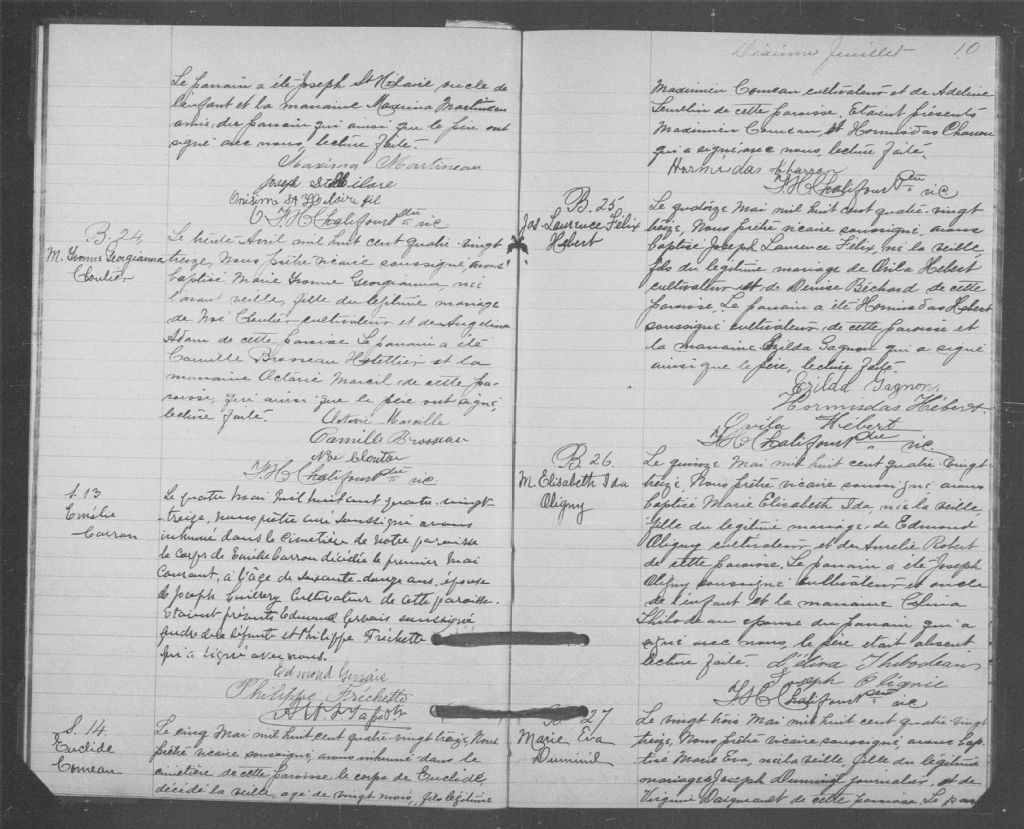 Le parrain a été Joseph St Hilaire oncle de
l'enfant et la marraine Maxima Martineau
amie du parrain qui ainsi que le père ont
signé avec nous, lecture faite.
Maxima Martineau
Joseph St Hilare
Onisime St Hilaire fil
F. H. Chalifour Ptre vic
B. 24.
M. Yvonne Georgianna
Cloutier
Le trente Avril mil huit cent quatre-vingt
treize, Nous prêtre vicaire soussigné, avons
baptisé Marie Yvonne Georgianna, née
l'avant veille, fille du légitime mariage
de Noé Cloutier cultivateur et de Angelina
Adam de cette paroisse. Le parrain a été
Camille Brosseau Hôtellier et la
marraine Octavie Marcil de cette pa-
roisse, qui ainsi que le père ont signé,
lecture faite.
Octavie Marsille
Camille Brosseau
Noé Cloutier
F. H. Chalifour Ptre vic.
S. 13
Emélie
Carron
Le quatre Mai Mil huit cent quatre-vingt-
treize, nous prêtre curé soussigné avons
inhumé dans le cimetière de notre paroisse
le corps de Emélie Carron décédée le premier Mai
courant, à l'âge de soixante-douze ans, épouse
de Joseph Cultivateur de cette paroisse.
Etaient présents Edmond Gervais soussigné
gendre de la défunte et Philippe Frichette
qui a signé avec nous.
Edmond Gervais
Philippe Frichette
S. 14.
Euclide
Comeau
Le cinq Mai mil huit cent quatre-vingt treize, Nous
prêtre vicaire soussigné, avons inhumé dans le
cimetière de cette paroisse le corps de Euclide
décédé la veille, agé de vingt mois, fils légitime
Dixième Feuillet 10
Maximien Comeau cultivateur et de Adeline
de cette paroisse. Etaient présents
Maximien Comeau, et Hormisdas Charron
qui a signé avec nous, lecture faite.
Hormidas Charron
F. H. Chalifour Ptre vic
B. 25.
Jos. Laurence Félix
Hebert
Le quatorze Mai mil huit cent quatre-vingt
treize, Nous prêtre vicaire soussigné, avons
baptisé Joseph Laurence Félix, né la veille,
fils du légitime mariage de Ovila Hebert
cultivateur et de Denise Béchard de cette
paroisse. Le parrain a été Hormisdas Hebert
soussigné cultivateur de cette paroisse et
la marraine Ezilda Gagnon qui a signé
ainsi que le père, lecture faite.
Ezilda Gagnon,
Hormisdas Hébert.
Ovila Hébert
F. H. Chalifour Ptre vic
B. 26.
M. Elisabeth Ida
Oligny
Le quinze Mai mil huit cent quatre-vingt-
treize Nous prêtre vicaire soussigné avons
baptisé Marie Elisabeth Ida, née la veille,
fille du légitime mariage de Edmond
Oligny cultivateur, et de Aurelie Robert
de cette paroisse. Le parrain a été Joseph
Oligny soussigné cultivateur et oncle
de l'enfant et la marraine Celina
Thibodeau epouse du parrain qui a
signé avec nous, le père étant absent,
lecture faite. Célina Thibodeau
Joseph Olignie
F. H. Chalifour Ptre vic
B. 27
Marie Eva
Duminil
Le vingt trois Mai mil huit cent quatre-vingt
treize, Nous prêtre vicaire soussigné avons bap-
tisé Marie Eva, née la veille fille du légitime
mariage de Joseph Duminil journalier, et de
Virginie Daigneault de cette paroisse. Le par